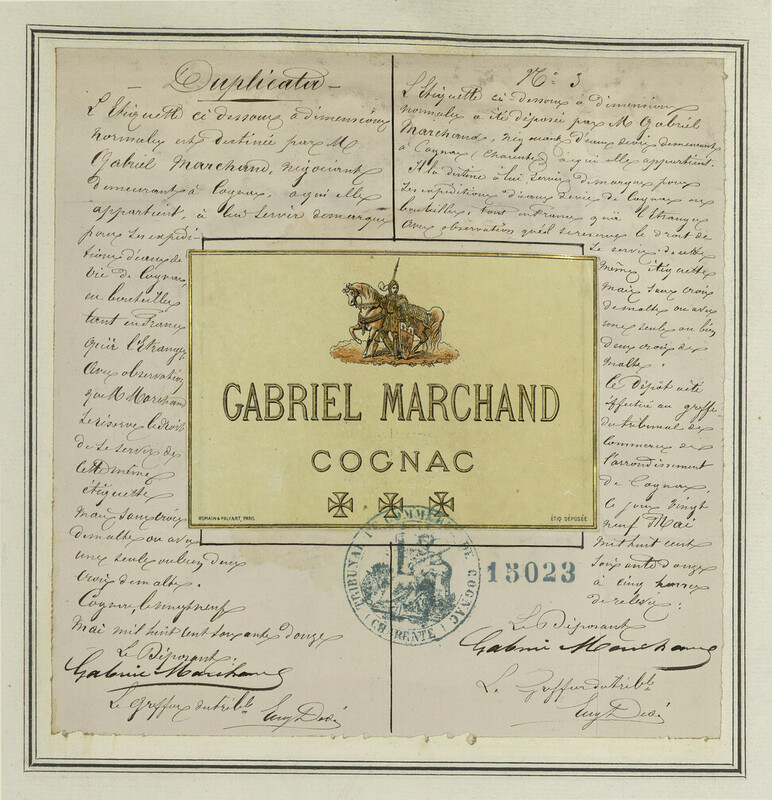 Duplicata
L'Etiquette ci dessous à dimensions
normales est destinée par M
Gabriel Marchand, négociant
demeurant à Cognac, à qui elle
appartient, à lui servir de marque
pour ses expédi-
tions d'eaux de
vie de Cognac,
en bouteilles
tant en France
qu'à l'Etranger
Avec observation
que M Marchand
se réserve le droit
de se servir de
cette même
étiquette
mais sans croix
de malte ou avec
une seule ou bien deux
croix de malte.
Cognac, le vingt neuf
Mai mil huit cent soixante douze
Le Déposant,
Gabriel Marchand
Le Greffier du trib^le
N° 3
L'Etiquette ci-dessous à dimensions
normales a été déposée par M Gabriel
Marchand, négociant d'eaux de vie demeurant
à Cognac (Charente) à qui elle appartient.
Il la destine à lui servir de marque pour
ses expéditions d'eaux de vie de Cognac en
bouteilles, tant en France qu'à l'Etranger
Avec observation qu'il se réserve le droit de
se servir de cette
même étiquette
mais sans croix
de malte ou avec
une seule ou bien
deux croix de
malte.
Le Dépôt a été
effectué au greffe
du tribunal de
commerce de
l'arrondissement
de Cognac,
le jour vingt
neuf Mai
mil huit cent
soixante douze
à cinq heures
de relevée.
Le Déposant
Gabriel Marchand
Le Greffier du trib^le
GABRIEL MARCHAND
COGNAC
ROMAIN & PALYART, PARIS
ETIQ. DÉPOSÉE
TRIBUNAL DE COMMERCE DE COGNAC
(CHARENTE)
15023